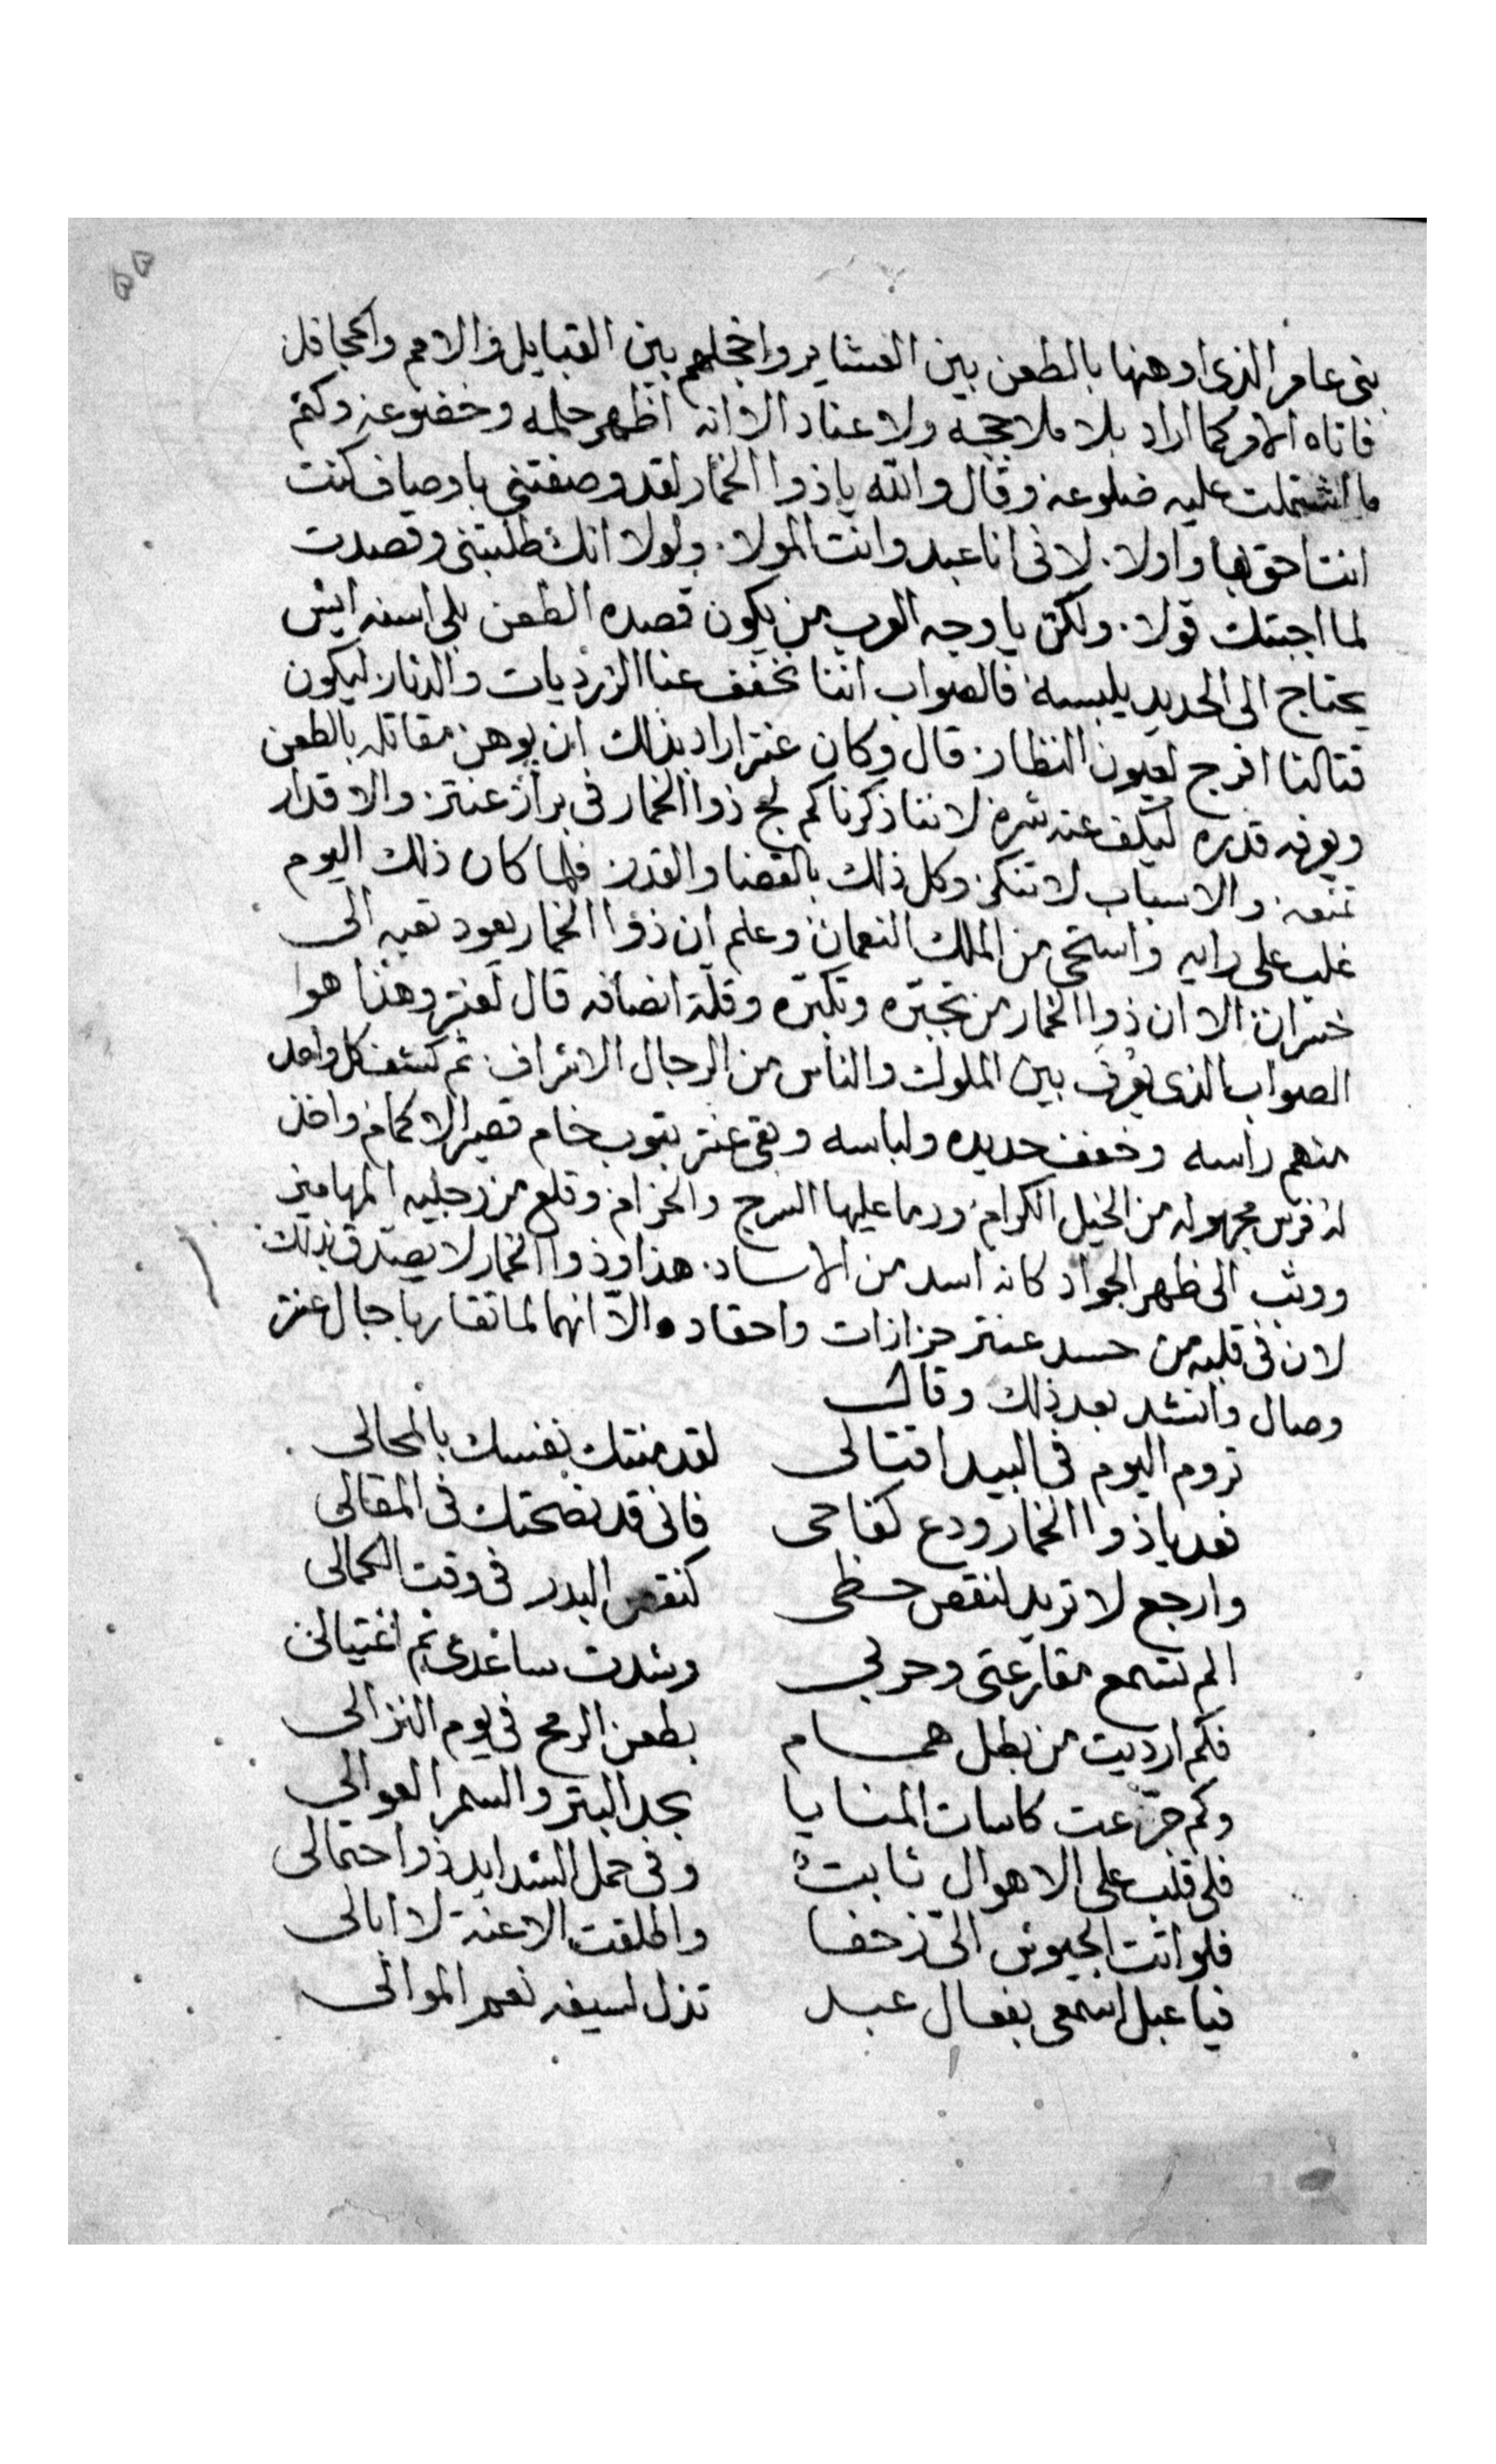 ٥٥
بنى عامر الذى اوهنها بالطعن بين العشاير واخجلهم بين القبايل والامم والحجافل
فاتاه الامر كما اراد بلا ملاججه ولا عناد الا انه اظهر حلمه وخضوعه وكتم
ما اشتملت عليه ضلوعه وقال والله يا ذوا الخمار لقد وصفتنى باوصاف كنت
انت احق بها واولا. لانى انا عبد وانت المولا. ولولا انك طلبتنى وقصدت
لما اجبتك قولا. ولكن يا وجه العرب من يكون قصده الطعن بلى اسنه ايش
يحتاج الى الحديد يلبسه فالصواب اننا نخفف عنا الزرديات والدثار ليكون
قتالنا افرج لعيون النظار قال وكان عنتر اراد بذلك ان يوهن مقاتله بالطعن
ويعرفه قدره ليكف عنه شره لاننا ذكرنا كم لج ذوا الخمار فى براز عنتر والاقدار
تمنعه والاسباب لا تنكر وكل ذلك بالقضا والقدر فلما كان ذلك اليوم
غلب على رايه واستحى من الملك النعمان وعلم ان ذوا الخمار يعود تعبه الى
خسران الا ان ذوا الخمار من تجبره وتكبره وقلة انصافه قال لعنتر وهذا هوا
الصواب الذى يعرف بين الملوك والناس من الرجال الاشراف ثم كشف كل واحد
منهم راسه وخفف حديده ولباسه وبقى عنتر بثوب خام قصير الاكمام واخذ
له فرس مجهوله من الخيل الكرام ورما عليها السرج والحزام وقلع من رجليه المهاميز
ووثب الى ظهر الجواد كانه اسد من الاساد. هذا وذوا الخمار لا يصدق بذلك
لان فى قلبه من حسد عنتر حزازات واحقاد والا انهما لما تقاربا جال عنتر
وصال وانشد بعد ذلك وقال
تروم اليوم فى البيدا قتالى لقد منتك نفسك بالمحالى
فعد يا ذوا الخمار ودع كفاحى فانى قد نصحتك فى المقالى
وارجع لا تريد لنقص حظى كنقص البدر فى وقت الكمالى
الم تسمع مقارعتى وحربى وشدت ساعدى ثم اغتيالى
فكم ارديت من بطل همام بطعن الرمح فى يوم النزالى
وكم جرعت كاسات المنايا بحد البتر والسمر العوالى
فلى قلب على الاهوال ثابت وفى حمل الشدايد ذوا احتمالى
فلو اتت الجيوش الى زحفا واطلقت الاعنة لا ابالى
فيا عبل اسمعى بفعال عبد تذل لسيفه نعم الموالى